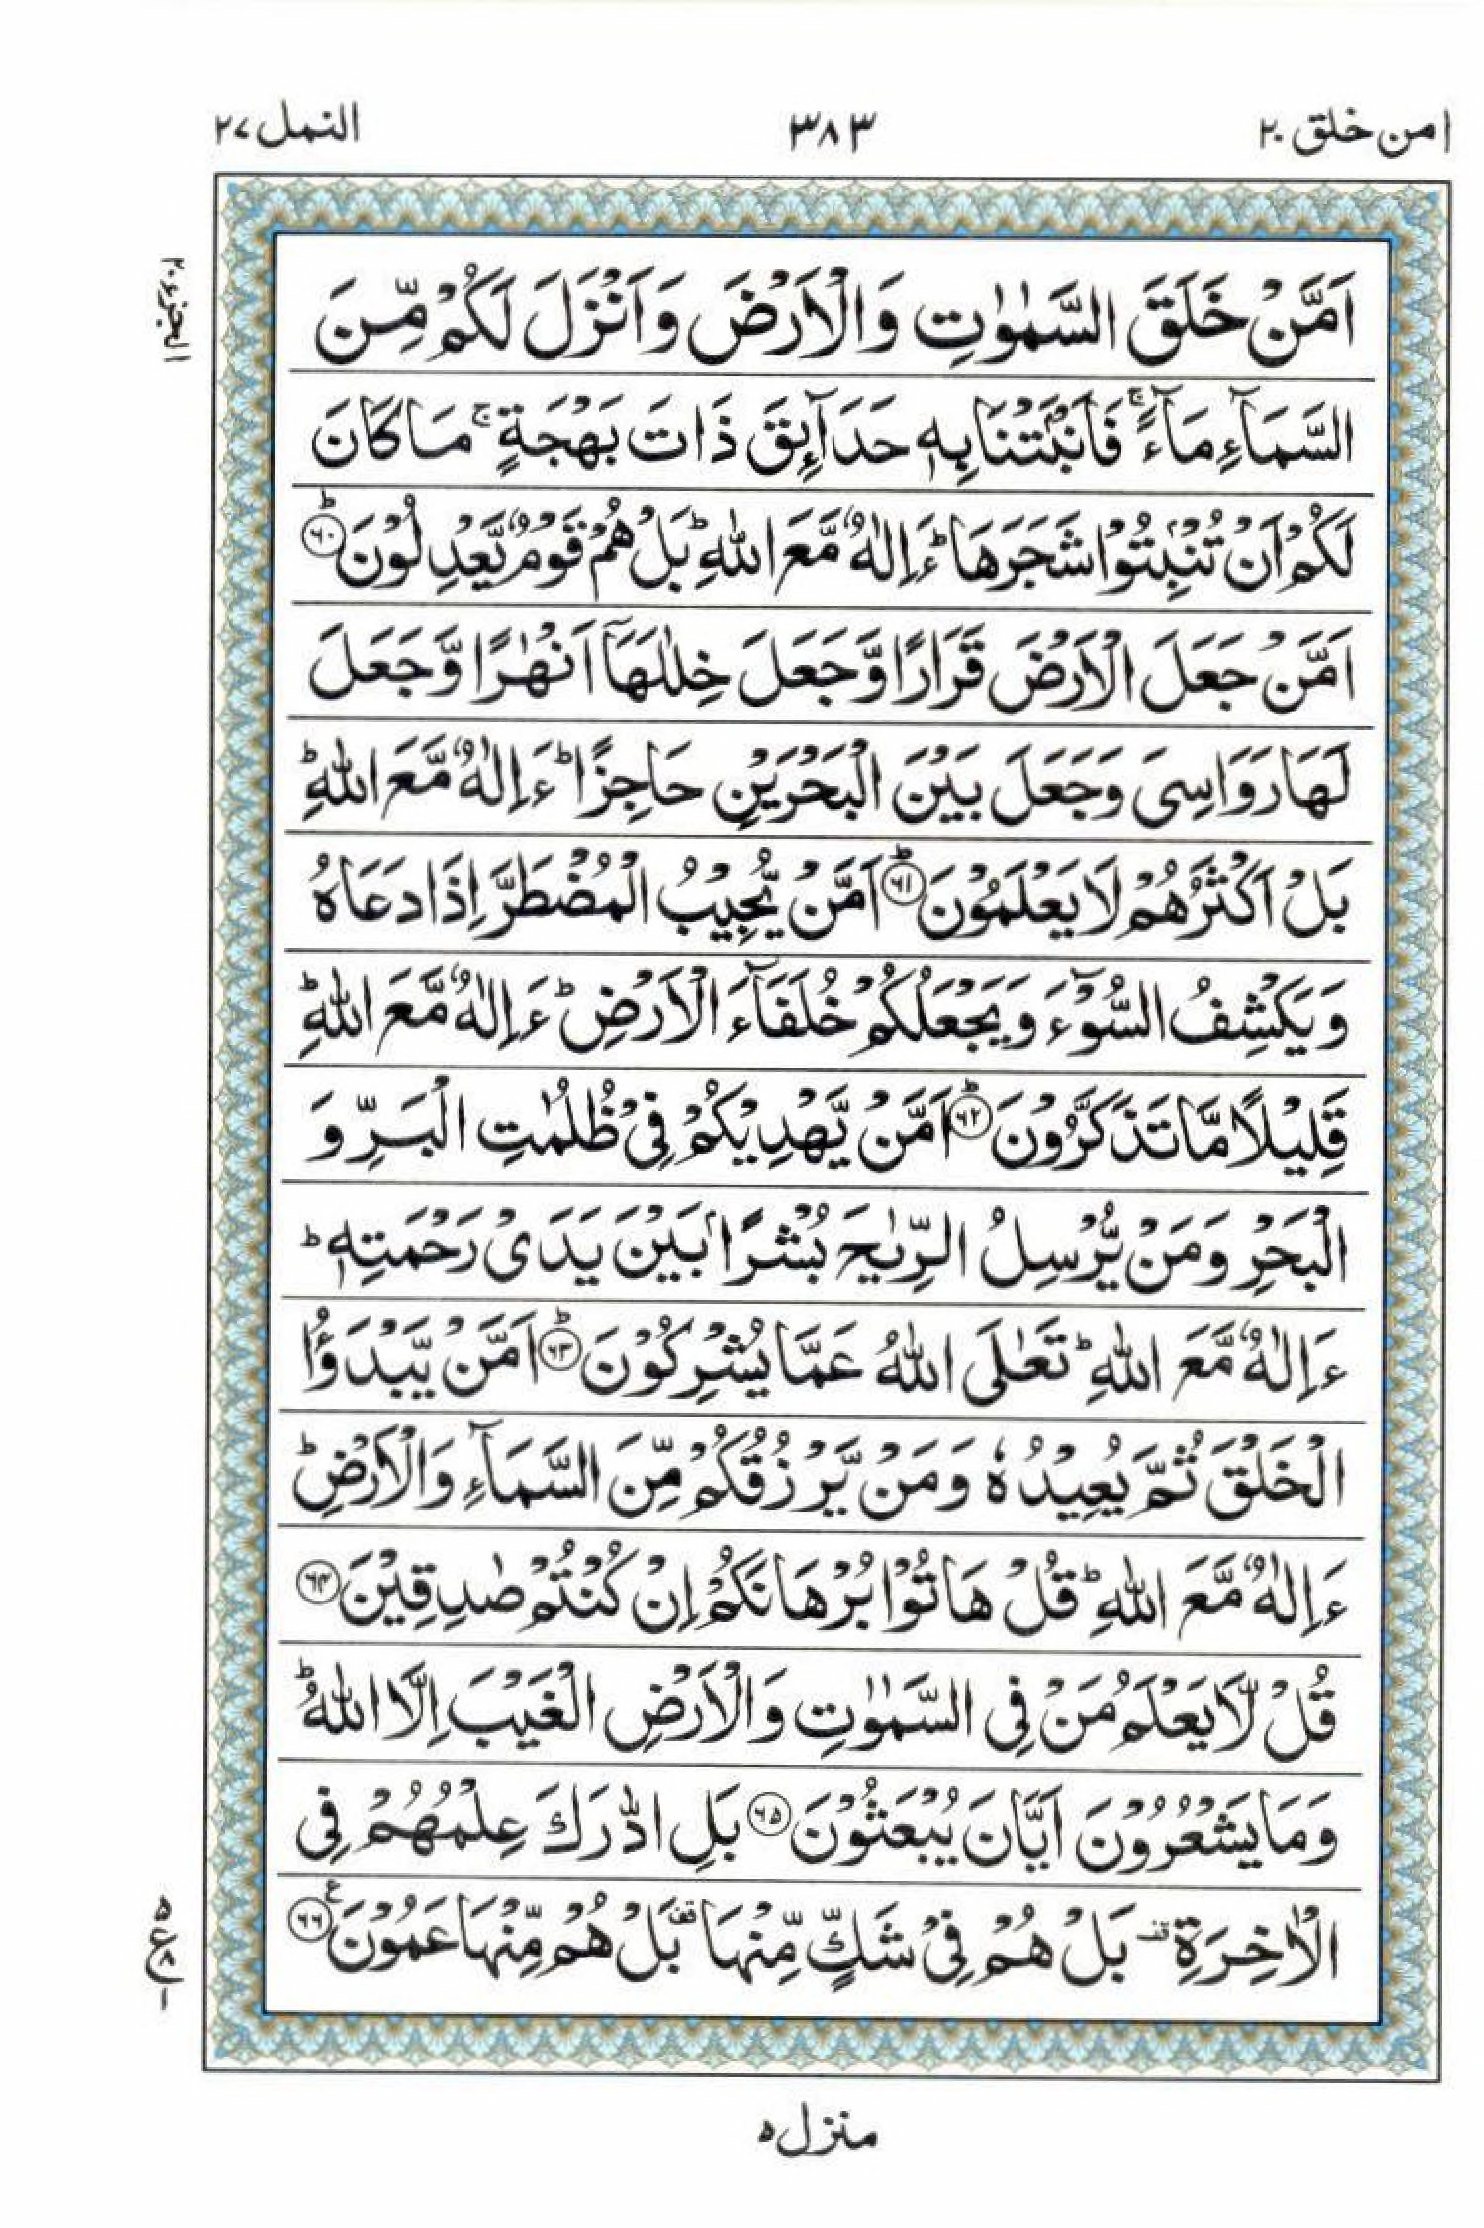 امن خلق ٢٠
٣٨٣
النمل ٢٧
الجزء ٢٠
اَمَّنْ خَلَقَ السَّمٰوٰتِ وَالْاَرْضَ وَاَنْزَلَ لَكُمْ مِّنَ
السَّمَآءِ مَآءً ۚ فَاَنْۢبَتْنَا بِهٖ حَدَآئِقَ ذَاتَ بَهْجَةٍ ۚ مَا كَانَ
لَكُمْ اَنْ تُنْۢبِتُوْا شَجَرَهَا ؕ ءَاِلٰهٌ مَّعَ اللّٰهِ ؕ بَلْ هُمْ قَوْمٌ يَّعْدِلُوْنَ ؕ ﴿۶۰﴾
اَمَّنْ جَعَلَ الْاَرْضَ قَرَارًا وَّجَعَلَ خِلٰلَهَاۤ اَنْهٰرًا وَّجَعَلَ
لَهَا رَوَاسِىَ وَجَعَلَ بَيْنَ الْبَحْرَيْنِ حَاجِزًا ؕ ءَاِلٰهٌ مَّعَ اللّٰهِ ؕ
بَلْ اَكْثَرُهُمْ لَا يَعْلَمُوْنَ ؕ ﴿۶۱﴾ اَمَّنْ يُّجِيْبُ الْمُضْطَرَّ اِذَا دَعَاهُ
وَيَكْشِفُ السُّوْٓءَ وَيَجْعَلُكُمْ خُلَفَآءَ الْاَرْضِ ؕ ءَاِلٰهٌ مَّعَ اللّٰهِ ؕ
قَلِيْلًا مَّا تَذَكَّرُوْنَ ؕ ﴿۶۲﴾ اَمَّنْ يَّهْدِيْكُمْ فِىْ ظُلُمٰتِ الْبَرِّ وَ
الْبَحْرِ وَمَنْ يُّرْسِلُ الرِّيٰحَ بُشْرًۢا بَيْنَ يَدَىْ رَحْمَتِهٖ ؕ
ءَاِلٰهٌ مَّعَ اللّٰهِ ؕ تَعٰلَى اللّٰهُ عَمَّا يُشْرِكُوْنَ ؕ ﴿۶۳﴾ اَمَّنْ يَّبْدَؤُا
الْخَلْقَ ثُمَّ يُعِيْدُهٗ وَمَنْ يَّرْزُقُكُمْ مِّنَ السَّمَآءِ وَالْاَرْضِ ؕ
ءَاِلٰهٌ مَّعَ اللّٰهِ ؕ قُلْ هَاتُوْا بُرْهَانَكُمْ اِنْ كُنْتُمْ صٰدِقِيْنَ ﴿۶۴﴾
قُلْ لَّا يَعْلَمُ مَنْ فِى السَّمٰوٰتِ وَالْاَرْضِ الْغَيْبَ اِلَّا اللّٰهُ ؕ
وَمَا يَشْعُرُوْنَ اَيَّانَ يُبْعَثُوْنَ ﴿۶۵﴾ بَلِ ادّٰرَكَ عِلْمُهُمْ فِى
الْاٰخِرَةِ قف بَلْ هُمْ فِىْ شَكٍّ مِّنْهَا قف بَلْ هُمْ مِّنْهَا عَمُوْنَ ع ﴿۶۶﴾
منزل ٥